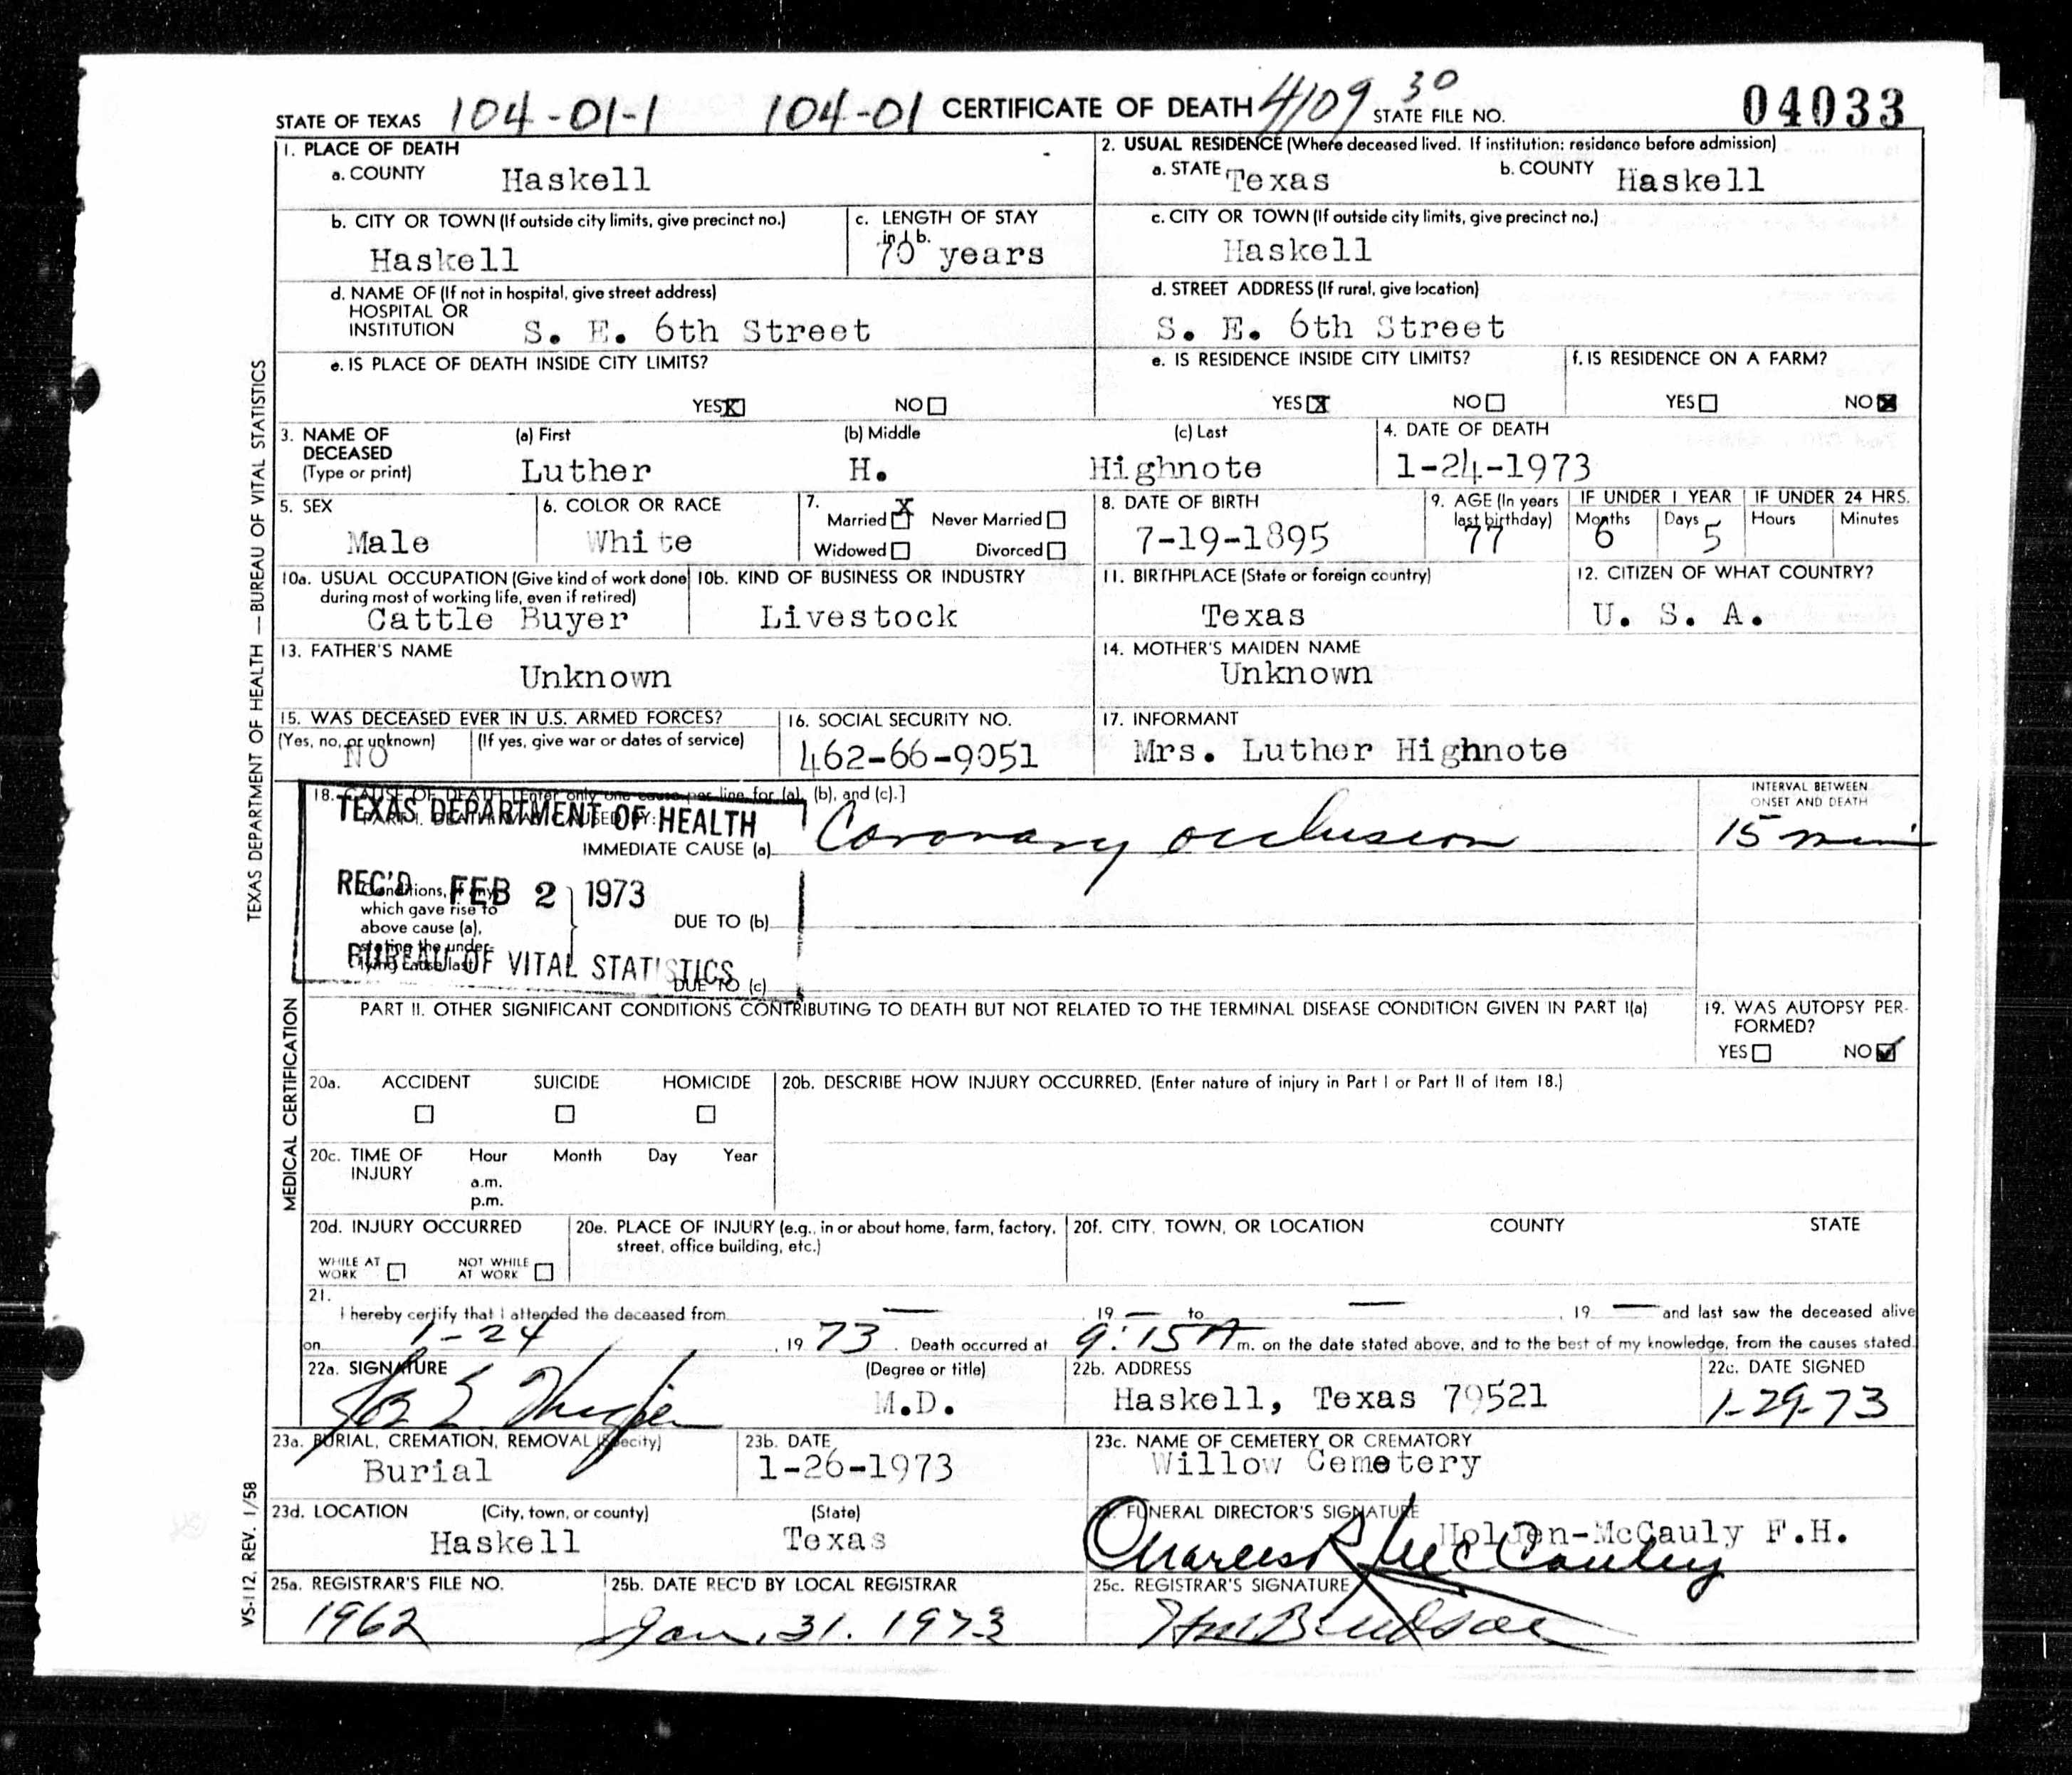 STATE OF TEXAS 104-01-1 104-01 CERTIFICATE OF DEATH 4109 30 STATE FILE NO. 04033
1. PLACE OF DEATH
a. COUNTY Haskell
2. USUAL RESIDENCE (Where deceased lived. If institution: residence before admission)
a. STATE Texas b. COUNTY Haskell
b. CITY OR TOWN (If outside city limits, give precinct no.)
Haskell
c. LENGTH OF STAY in 1 b.
70 years
c. CITY OR TOWN (If outside city limits, give precinct no.)
Haskell
d. NAME OF (If not in hospital, give street address)
HOSPITAL OR
INSTITUTION S. E. 6th Street
d. STREET ADDRESS (If rural, give location)
S. E. 6th Street
e. IS PLACE OF DEATH INSIDE CITY LIMITS?
YES X NO
e. IS RESIDENCE INSIDE CITY LIMITS?
YES X NO
f. IS RESIDENCE ON A FARM?
YES NO X
3. NAME OF DECEASED (Type or print)
(a) First (b) Middle (c) Last
Luther H. Highnote
4. DATE OF DEATH
1-24-1973
5. SEX
Male
6. COLOR OR RACE
White
7. Married X Never Married
Widowed Divorced
8. DATE OF BIRTH
7-19-1895
9. AGE (In years last birthday)
77
IF UNDER 1 YEAR IF UNDER 24 HRS.
Months Days Hours Minutes
6 5
10a. USUAL OCCUPATION (Give kind of work done
during most of working life, even if retired)
Cattle Buyer
10b. KIND OF BUSINESS OR INDUSTRY
Livestock
11. BIRTHPLACE (State or foreign country)
Texas
12. CITIZEN OF WHAT COUNTRY?
U. S. A.
13. FATHER'S NAME
Unknown
14. MOTHER'S MAIDEN NAME
Unknown
15. WAS DECEASED EVER IN U.S. ARMED FORCES?
(Yes, no, or unknown) (If yes, give war or dates of service)
NO
16. SOCIAL SECURITY NO.
462-66-9051
17. INFORMANT
Mrs. Luther Highnote
18. CAUSE OF DEATH [Enter only one cause per line for (a), (b), and (c).]
PART I. DEATH WAS CAUSED BY:
IMMEDIATE CAUSE (a) Coronary occlusion
INTERVAL BETWEEN
ONSET AND DEATH
15 min
TEXAS DEPARTMENT OF HEALTH
REC'D FEB 2 1973
BUREAU OF VITAL STATISTICS
Conditions, if any,
which gave rise to
above cause (a),
stating the under-
lying cause last
DUE TO (b)
DUE TO (c)
PART II. OTHER SIGNIFICANT CONDITIONS CONTRIBUTING TO DEATH BUT NOT RELATED TO THE TERMINAL DISEASE CONDITION GIVEN IN PART I(a)
19. WAS AUTOPSY PER-
FORMED?
YES NO ✓
20a. ACCIDENT SUICIDE HOMICIDE
20b. DESCRIBE HOW INJURY OCCURRED. (Enter nature of injury in Part I or Part II of item 18.)
20c. TIME OF INJURY Hour Month Day Year
a.m.
p.m.
20d. INJURY OCCURRED
WHILE AT WORK NOT WHILE AT WORK
20e. PLACE OF INJURY (e.g., in or about home, farm, factory,
street, office building, etc.)
20f. CITY, TOWN, OR LOCATION COUNTY STATE
21.
I hereby certify that I attended the deceased from — , 19 — to — , 19 — and last saw the deceased alive
on 1-24 , 19 73 . Death occurred at 9:15 A m. on the date stated above, and to the best of my knowledge, from the causes stated.
22a. SIGNATURE (Degree or title)
M.D.
22b. ADDRESS
Haskell, Texas 79521
22c. DATE SIGNED
1-29-73
23a. BURIAL, CREMATION, REMOVAL (Specify)
Burial
23b. DATE
1-26-1973
23c. NAME OF CEMETERY OR CREMATORY
Willow Cemetery
23d. LOCATION (City, town, or county) (State)
Haskell Texas
FUNERAL DIRECTOR'S SIGNATURE
Holden-McCauly F.H.
Charles R McCauley
25a. REGISTRAR'S FILE NO.
1962
25b. DATE REC'D BY LOCAL REGISTRAR
Jan. 31. 1973
25c. REGISTRAR'S SIGNATURE
TEXAS DEPARTMENT OF HEALTH — BUREAU OF VITAL STATISTICS
MEDICAL CERTIFICATION
VS-112, REV. 1/58